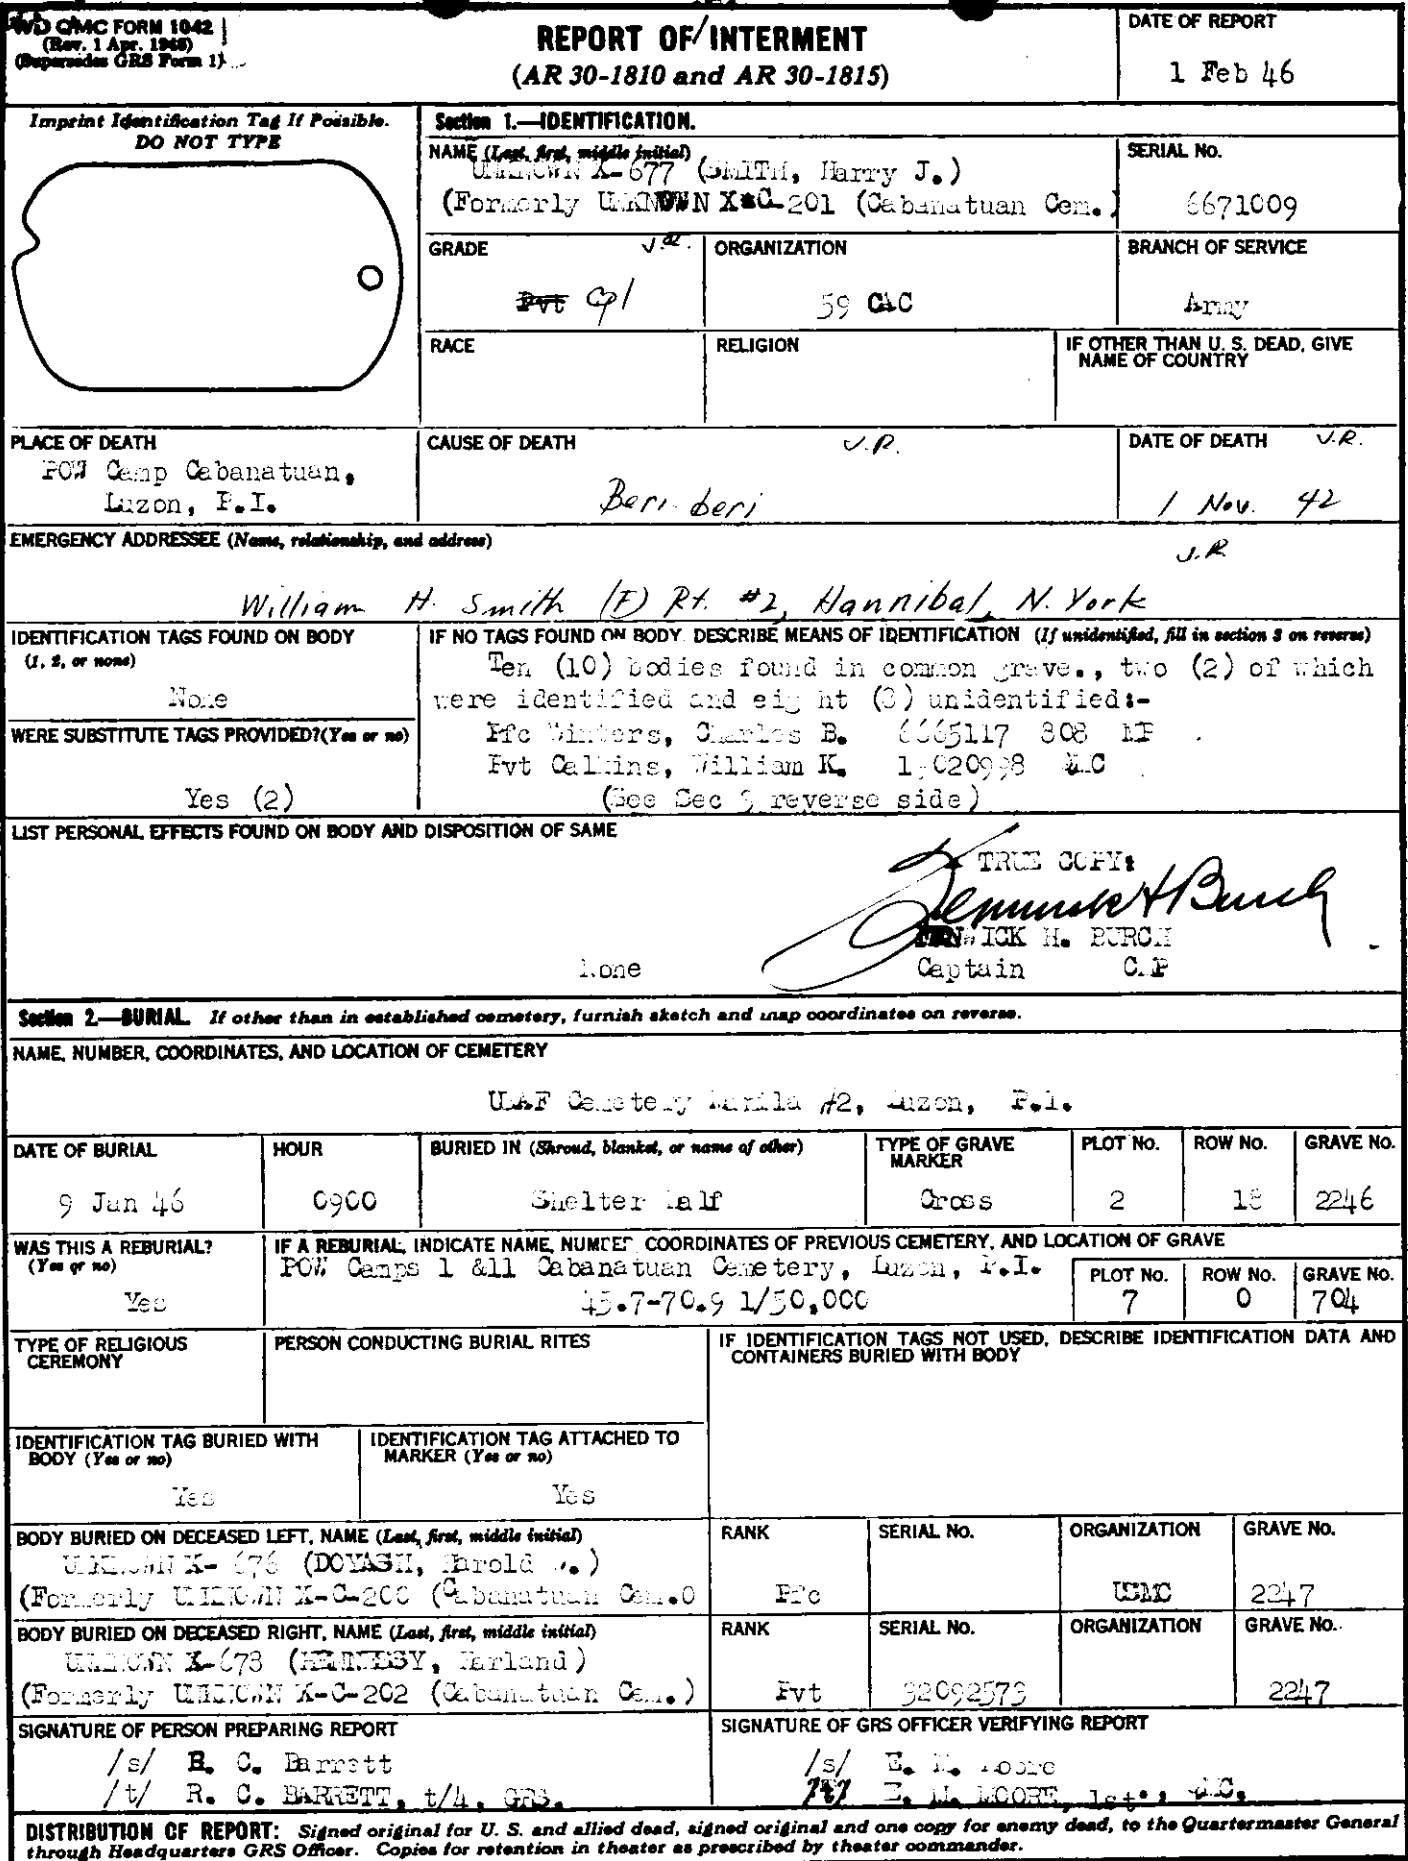 WD QMC FORM 1042
(Rev. 1 Apr. 1945)
(Supersedes GRS Form 1)
REPORT OF INTERMENT
(AR 30-1810 and AR 30-1815)
DATE OF REPORT
1 Feb 46
Imprint Identification Tag If Possible.
DO NOT TYPE
Section 1.—IDENTIFICATION.
NAME (Last, first, middle initial)
UNKNOWN X-677 (SMITH, Harry J.)
(Formerly UNKNOWN X-C-201 (Cabanatuan Cem.)
SERIAL No.
6671009
GRADE
J.R.
Pvt Cpl
ORGANIZATION
59 CAC
BRANCH OF SERVICE
Army
RACE
RELIGION
IF OTHER THAN U. S. DEAD, GIVE
NAME OF COUNTRY
PLACE OF DEATH
POW Camp Cabanatuan,
Luzon, P.I.
CAUSE OF DEATH
J.R.
Beri-beri
DATE OF DEATH
J.R.
1 Nov. 42
EMERGENCY ADDRESSEE (Name, relationship, and address)
J.R
William H. Smith (F) Rt. #2, Hannibal, N. York
IDENTIFICATION TAGS FOUND ON BODY
(1, 2, or none)
None
IF NO TAGS FOUND ON BODY. DESCRIBE MEANS OF IDENTIFICATION (If unidentified, fill in section 3 on reverse)
Ten (10) bodies found in common grave., two (2) of which
were identified and eight (8) unidentified:-
Pfc Winters, Charles B. 6665117 808 MP
Pvt Calkins, William K.
(See Sec 3 reverse side)
WERE SUBSTITUTE TAGS PROVIDED? (Yes or no)
Yes (2)
LIST PERSONAL EFFECTS FOUND ON BODY AND DISPOSITION OF SAME
None
A TRUE COPY:
Fenwick H Burch
FENWICK H. BURCH
Captain CMP
Section 2.—BURIAL. If other than in established cemetery, furnish sketch and map coordinates on reverse.
NAME, NUMBER, COORDINATES, AND LOCATION OF CEMETERY
USAF Cemetery Manila #2, Luzon, P.I.
DATE OF BURIAL
9 Jan 46
HOUR
0900
BURIED IN (Shroud, blanket, or name of other)
Shelter Half
TYPE OF GRAVE
MARKER
Cross
PLOT No.
2
ROW No.
18
GRAVE No.
2246
WAS THIS A REBURIAL?
(Yes or no)
Yes
IF A REBURIAL, INDICATE NAME, NUMBER, COORDINATES OF PREVIOUS CEMETERY, AND LOCATION OF GRAVE
POW Camps 1 &11 Cabanatuan Cemetery, Luzon, P.I.
45.7-70.9 1/50,000
PLOT No.
7
ROW No.
0
GRAVE No.
704
TYPE OF RELIGIOUS
CEREMONY
PERSON CONDUCTING BURIAL RITES
IF IDENTIFICATION TAGS NOT USED, DESCRIBE IDENTIFICATION DATA AND
CONTAINERS BURIED WITH BODY
IDENTIFICATION TAG BURIED WITH
BODY (Yes or no)
Yes
IDENTIFICATION TAG ATTACHED TO
MARKER (Yes or no)
Yes
BODY BURIED ON DECEASED LEFT, NAME (Last, first, middle initial)
UNKNOWN X-676 (DOYASH, Harold
(Formerly UNKNOWN X-C-200 (Cabanatuan Cem.0
RANK
Pfc
SERIAL No.
ORGANIZATION
USMC
GRAVE No.
2247
BODY BURIED ON DECEASED RIGHT, NAME (Last, first, middle initial)
UNKNOWN X-678 (HENNESSY, Harland)
(Formerly UNKNOWN X-C-202 (Cabanatuan Cem.)
RANK
Pvt
SERIAL No.
32092573
ORGANIZATION
GRAVE No.
2247
SIGNATURE OF PERSON PREPARING REPORT
/s/ R. C. Barrett
/t/ R. C. BARRETT, t/4, GRS.
SIGNATURE OF GRS OFFICER VERIFYING REPORT
/s/ E. M. Moore
/t/ E. M. MOORE, 1st
DISTRIBUTION OF REPORT: Signed original for U. S. and allied dead, signed original and one copy for enemy dead, to the Quartermaster General
through Headquarters GRS Officer. Copies for retention in theater as prescribed by theater commander.